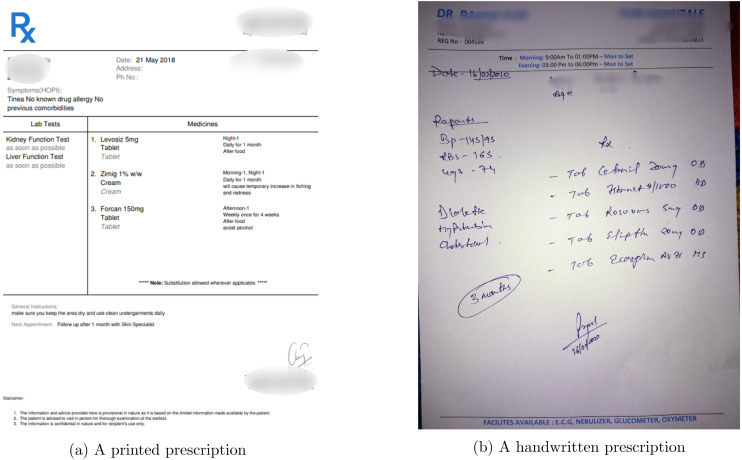 Rx
Date: 21 May 2018
Address:
Ph No.:
Symptoms(HOPI):
Tinea No known drug allergy No
previous comorbidities
Lab Tests
Medicines
Kidney Function Test
as soon as possible
Liver Function Test
as soon as possible
1. Levosiz 5mg
Tablet
Tablet
Night-1
Daily for 1 month
After food
2. Zimig 1% w/w
Cream
Cream
Morning-1, Night-1
Daily for 1 month
will cause temporary increase in itching
and redness
3. Forcan 150mg
Tablet
Tablet
Afternoon-1
Weekly once for 4 weeks
After food
avoid alcohol
***** Note: Substitution allowed wherever applicable. *****
General Instructions:
make sure you keep the area dry and use clean undergarments daily
Next Appointment: Follow up after 1 month with Skin Specialist
Disclaimer:
1. The information and advice provided here is provisional in nature as it is based on the limited information made available by the patient.
2. The patient is advised to visit in person for thorough examination at the earliest.
3. The information is confidential in nature and for recipient's use only.
(a) A printed prescription
DR
REG No -
Time : Morning: 9:00Am To 01:00PM – Mon to Sat
Evening: 03:00 Pm To 06:00Pm – Mon to Sat
Date-
Age
Reports
Rx
BP-145/95
RBS-165
- Tab 20mg OD
- Tab BD
- Tab 5mg OD
- Tab 20mg OD
- Tab
3 months
FACILITES AVAILABLE : E.C.G, NEBULIZER, GLUCOMETER, OXYMETER
(b) A handwritten prescription